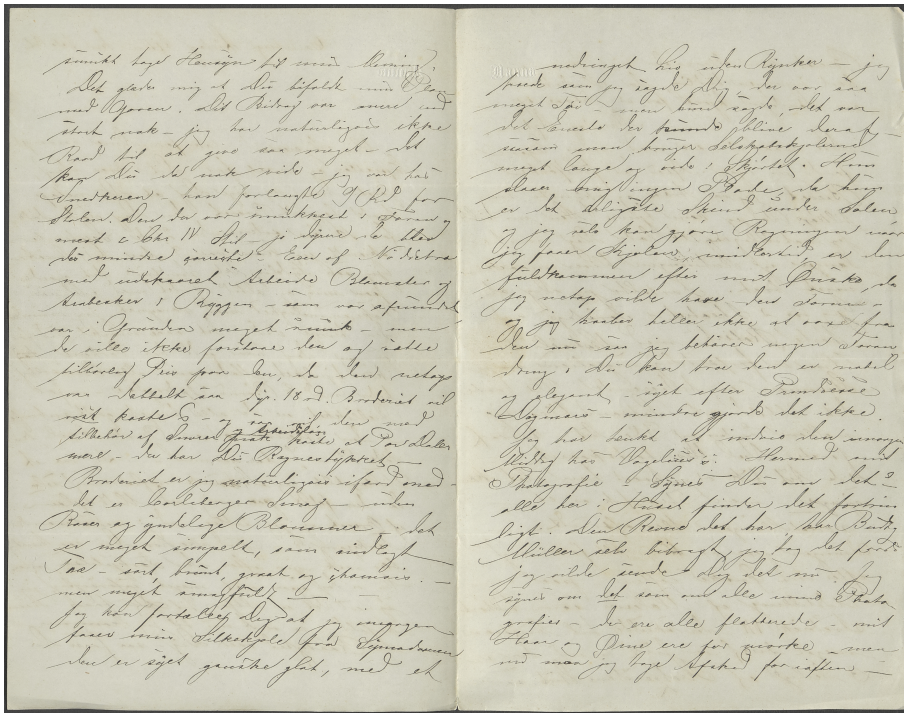 smukt tage Hensyn til min Mening.
Det glæder mig at Du bifaldt min Plan
med Gaven. Dit Bidrag var mere end
stort nok – jeg har naturligvis ikke
Raad til at give saa meget – det
kan Du da nok vide – jeg var hos
Snedkeren – han forlangte Rd for
Stolen. den der var smukkest i Formen og
mest Chr IV Stil – jo dyrere de blev
des mindre – Een af
med udskaaret Arbeide Blomster og
Arabesker i Ryggen – som var afrundet
var i Grunden meget smuk – men
de ville ikke forstaae den og sætte
tilbørlig Priis paa den, da den netop
var saa dyb. 18 rd. Broderiet vil
vist koste 5 – og den med
tilbehør af Snoren og Arbeidsløn koste et Par Daler
mere – der har Du Regnestykket –
Broderiet er jeg naturligvis ifærd med –
det er Carlsberger Smag – uden
Roser og yndelige Blommer – det
er meget simpelt, som indlagt
Træ – sort, bruunt, graat og chamois. –
men meget
Jeg kan fortælle Dig at jeg imorgen
faaer min Silkekjole fra Syjomfruen
den er syet ganske glat, med et
nedringet Liv uden Rynker – jeg
troede som jeg sagde Dig, der var saa
meget Tøi – men hun sagde, det var
det Eneste der kunde blive deraf –
saasom man bruger Selskabskjolerne
meget lange og vide i Skjørtet. Hun
slaaer ingen Plade, da hun
er det ærligste Skind under Solen
og jeg selv kan gjøre Regningen naar
jeg faaer Kjolen, imidlertid er den
fuldkommen efter mit Ønske, da
jeg netop vilde have den Form –
og jeg haaber heller ikke at voxe fra
den nu saa jeg behøver nogen Foran
dring. Du kan troe den er nobel
og elegant – syet efter Prindsesse
Dagmars – mindre gjorde det ikke.
Jeg har tænkt at indvie den imorgen
Middag hos Vogelius's. Hermed mit
Photografie. Synes Du om det? –
alle her i Huset finder det fortrin
ligt. Den Revne det har, har Budtz
Müller selv bibragt, jeg tog det fordi
jeg vilde sende Dig det nu. Jeg
synes om det som om alle mine Photo
grafier – de ere alle flatterede – mit
Haar og Øine ere for mørke – men
nu maa jeg tage Afsked for iaften –